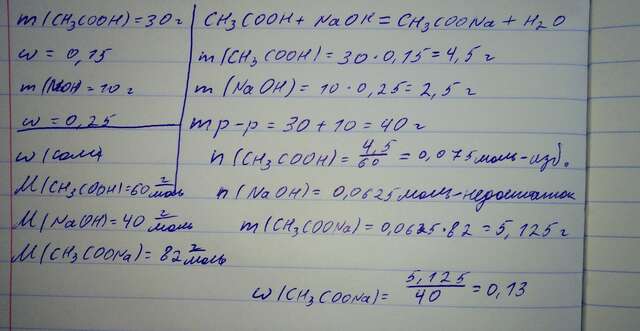 m(CH₃COOH)=30 г
w = 0,15
m(NaOH)=10 г
w=0,25
w(соли)
M(CH₃COOH)=60 г/моль
M(NaOH)=40 г/моль
M(CH₃COONa)=82 г/моль
CH₃COOH+NaOH=CH₃COONa+H₂O
m(CH₃COOH)=30·0,15=4,5 г
m(NaOH)=10·0,25=2,5 г
mр-р=30+10=40 г
n(CH₃COOH)=4,5/60=0,075моль-изб.
n(NaOH)=0,0625моль-недостаток
m(CH₃COONa)=0,0625·82=5,125г
w(CH₃COONa)=5,125/40=0,13